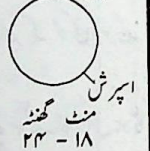 اسپرش
منٹ گھنٹہ
۲۴ - ۱۸